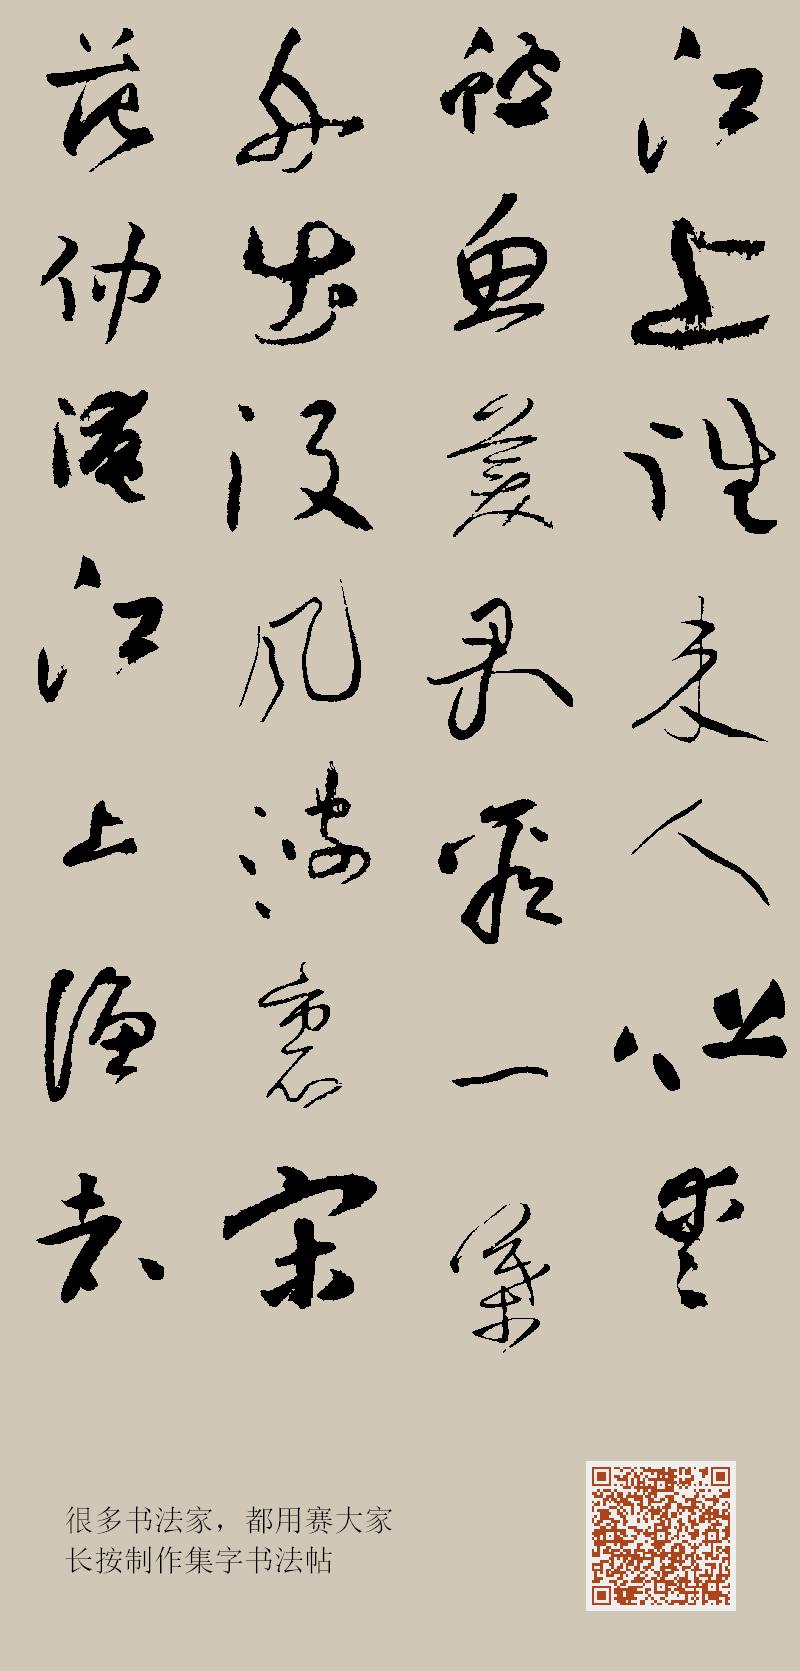 江上往来人但愛
鱸魚美君看一葉
舟出没风波裏宋
范仲淹江上漁者
很多书法家，都用赛大家
长按制作集字书法帖